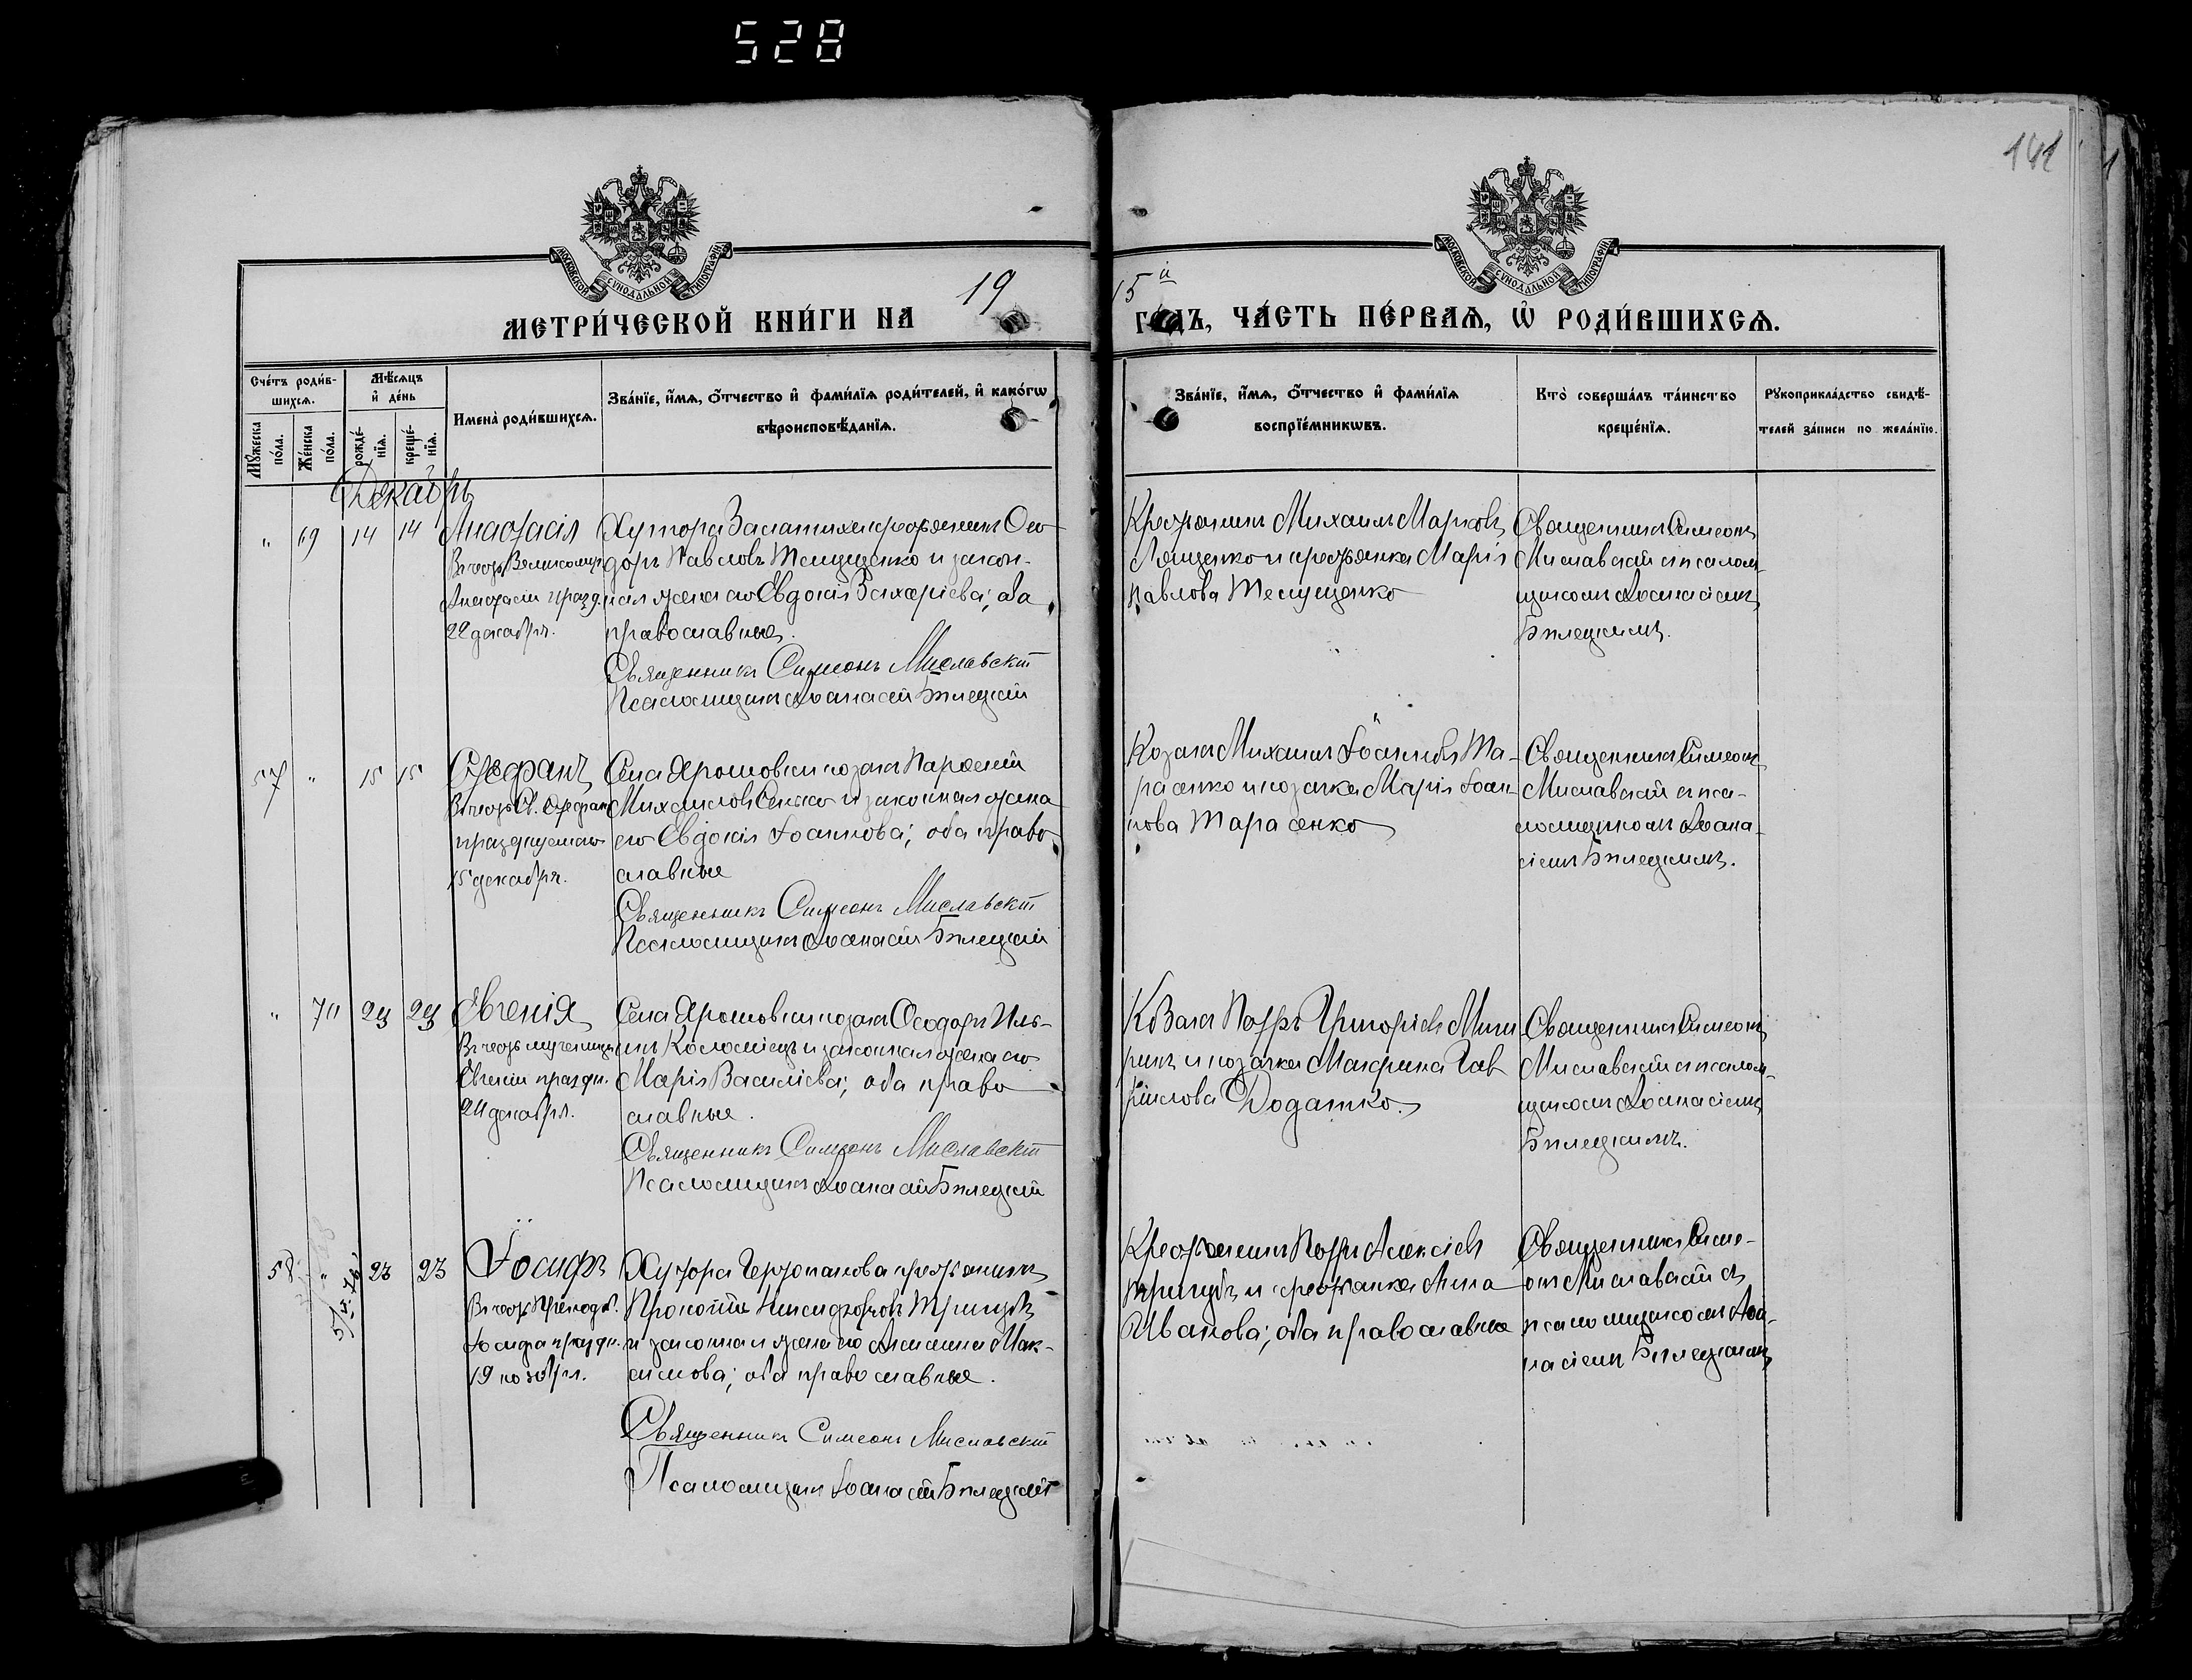 528
141
МОСКОВСКОЙ СѴНОДАЛЬНОЙ ТИПОГРАФІИ
МОСКОВСКОЙ СѴНОДАЛЬНОЙ ТИПОГРАФІИ
МЕТРИ́ЧЕСКОЙ КНИ́ГИ НА 19
15й ГО́ДЪ, ЧА́СТЬ ПЕ́РВАѦ, Ѡ҆ РОДИ́ВШИХСѦ.
Сче́тъ роди́в-
шихсѧ.
Мѣ́сѧцъ
и҆ де́нь
Мꙋ́жеска
по́ла.
Же́нска
по́ла.
рожде́-
нїѧ.
креще́-
нїѧ.
Имена̀ роди́вшихсѧ.
Зва́нїе, и҆́мѧ, ѻ҆́тчество и҆ фами́лїѧ роди́телей, и҆ како́гѡ
вѣроисповѣ́данїѧ.
Зва́нїе, и҆́мѧ, ѻ҆́тчество и҆ фами́лїѧ
воспрїе́мникѡвъ.
Кто̀ соверша́лъ та́инство
креще́нїѧ.
Рꙋкоприкла́дство свидѣ́-
телей за́писи по жела́нїю.
Декабрь
" 69 14 14 Анастасія
Въ честь Великомуч.
Анастасіи празд.
22 декабря.
Хутора крестьянинъ Ѳео-
доръ Павловъ Темущенко и закон-
ная жена его Евдокія Захаріева; оба
православные.
Священникъ Симеонъ Миславскій
Псаломщикъ Аѳанасій Билецкій
Крестьянинъ Михаилъ Марковъ
Лященко и крестьянка Марія
Павлова Темущенко
Священникъ Симеонъ
Миславскій съ псалом-
щикомъ Аѳанасіемъ
Билецкимъ.
57 " 15 15 Стефанъ
Въ честь Св. Стефана
празднуемаго
15 декабря.
Села Ярошовки козакъ
Михаиловъ Сенько и законная жена
его Евдокія Іоаннова; оба право-
славные
Священникъ Симеонъ Миславскій
Псаломщикъ Аѳанасій Билецкій
Козакъ Михаилъ Іоанновъ Та-
расенко и козачка Марія Іоан-
нова Тарасенко
Священникъ Симеонъ
Миславскій съ пса-
ломщикомъ Аѳана-
сіемъ Билецкимъ.
" 70 24 24 Евгенія
Въ честь мученицы
Евгеніи праздн.
24 декабря.
Села Ярошовки козакъ Ѳеодоръ Иль-
инъ Коломіецъ и законная жена его
Марія Василіева; оба право-
славные.
Священникъ Симеонъ Миславскій
Псаломщикъ Аѳанасій Билецкій
Козакъ Петръ Григоріевъ
и козачка Макрина Гав-
ріилова Додатко.
Священникъ Симеонъ
Миславскій съ псалом-
щикомъ Аѳанасіемъ
Билецкимъ.
58 " 23 23 Іосифъ
Въ честь Преподоб.
Іосифа праздн.
19 ноября.
Хутора крестьянинъ
Прокопій Никифоровъ Тригубъ
и законная жена его Мак-
симова; оба православные.
Священникъ Симеонъ Миславскій
Псаломщикъ Аѳанасій Билецкій
Крестьянинъ Петръ Алексіевъ
Тригубъ и крестьянка Анна
Иванова; оба православные
Священникъ Симе-
онъ Миславскій съ
псаломщикомъ Аѳа-
насіемъ Билецкимъ